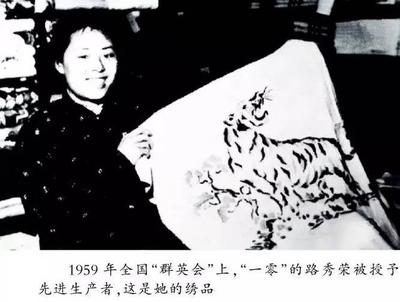 1959 年全国“群英会”上,“一零”的路秀荣被授予
先进生产者,这是她的绣品